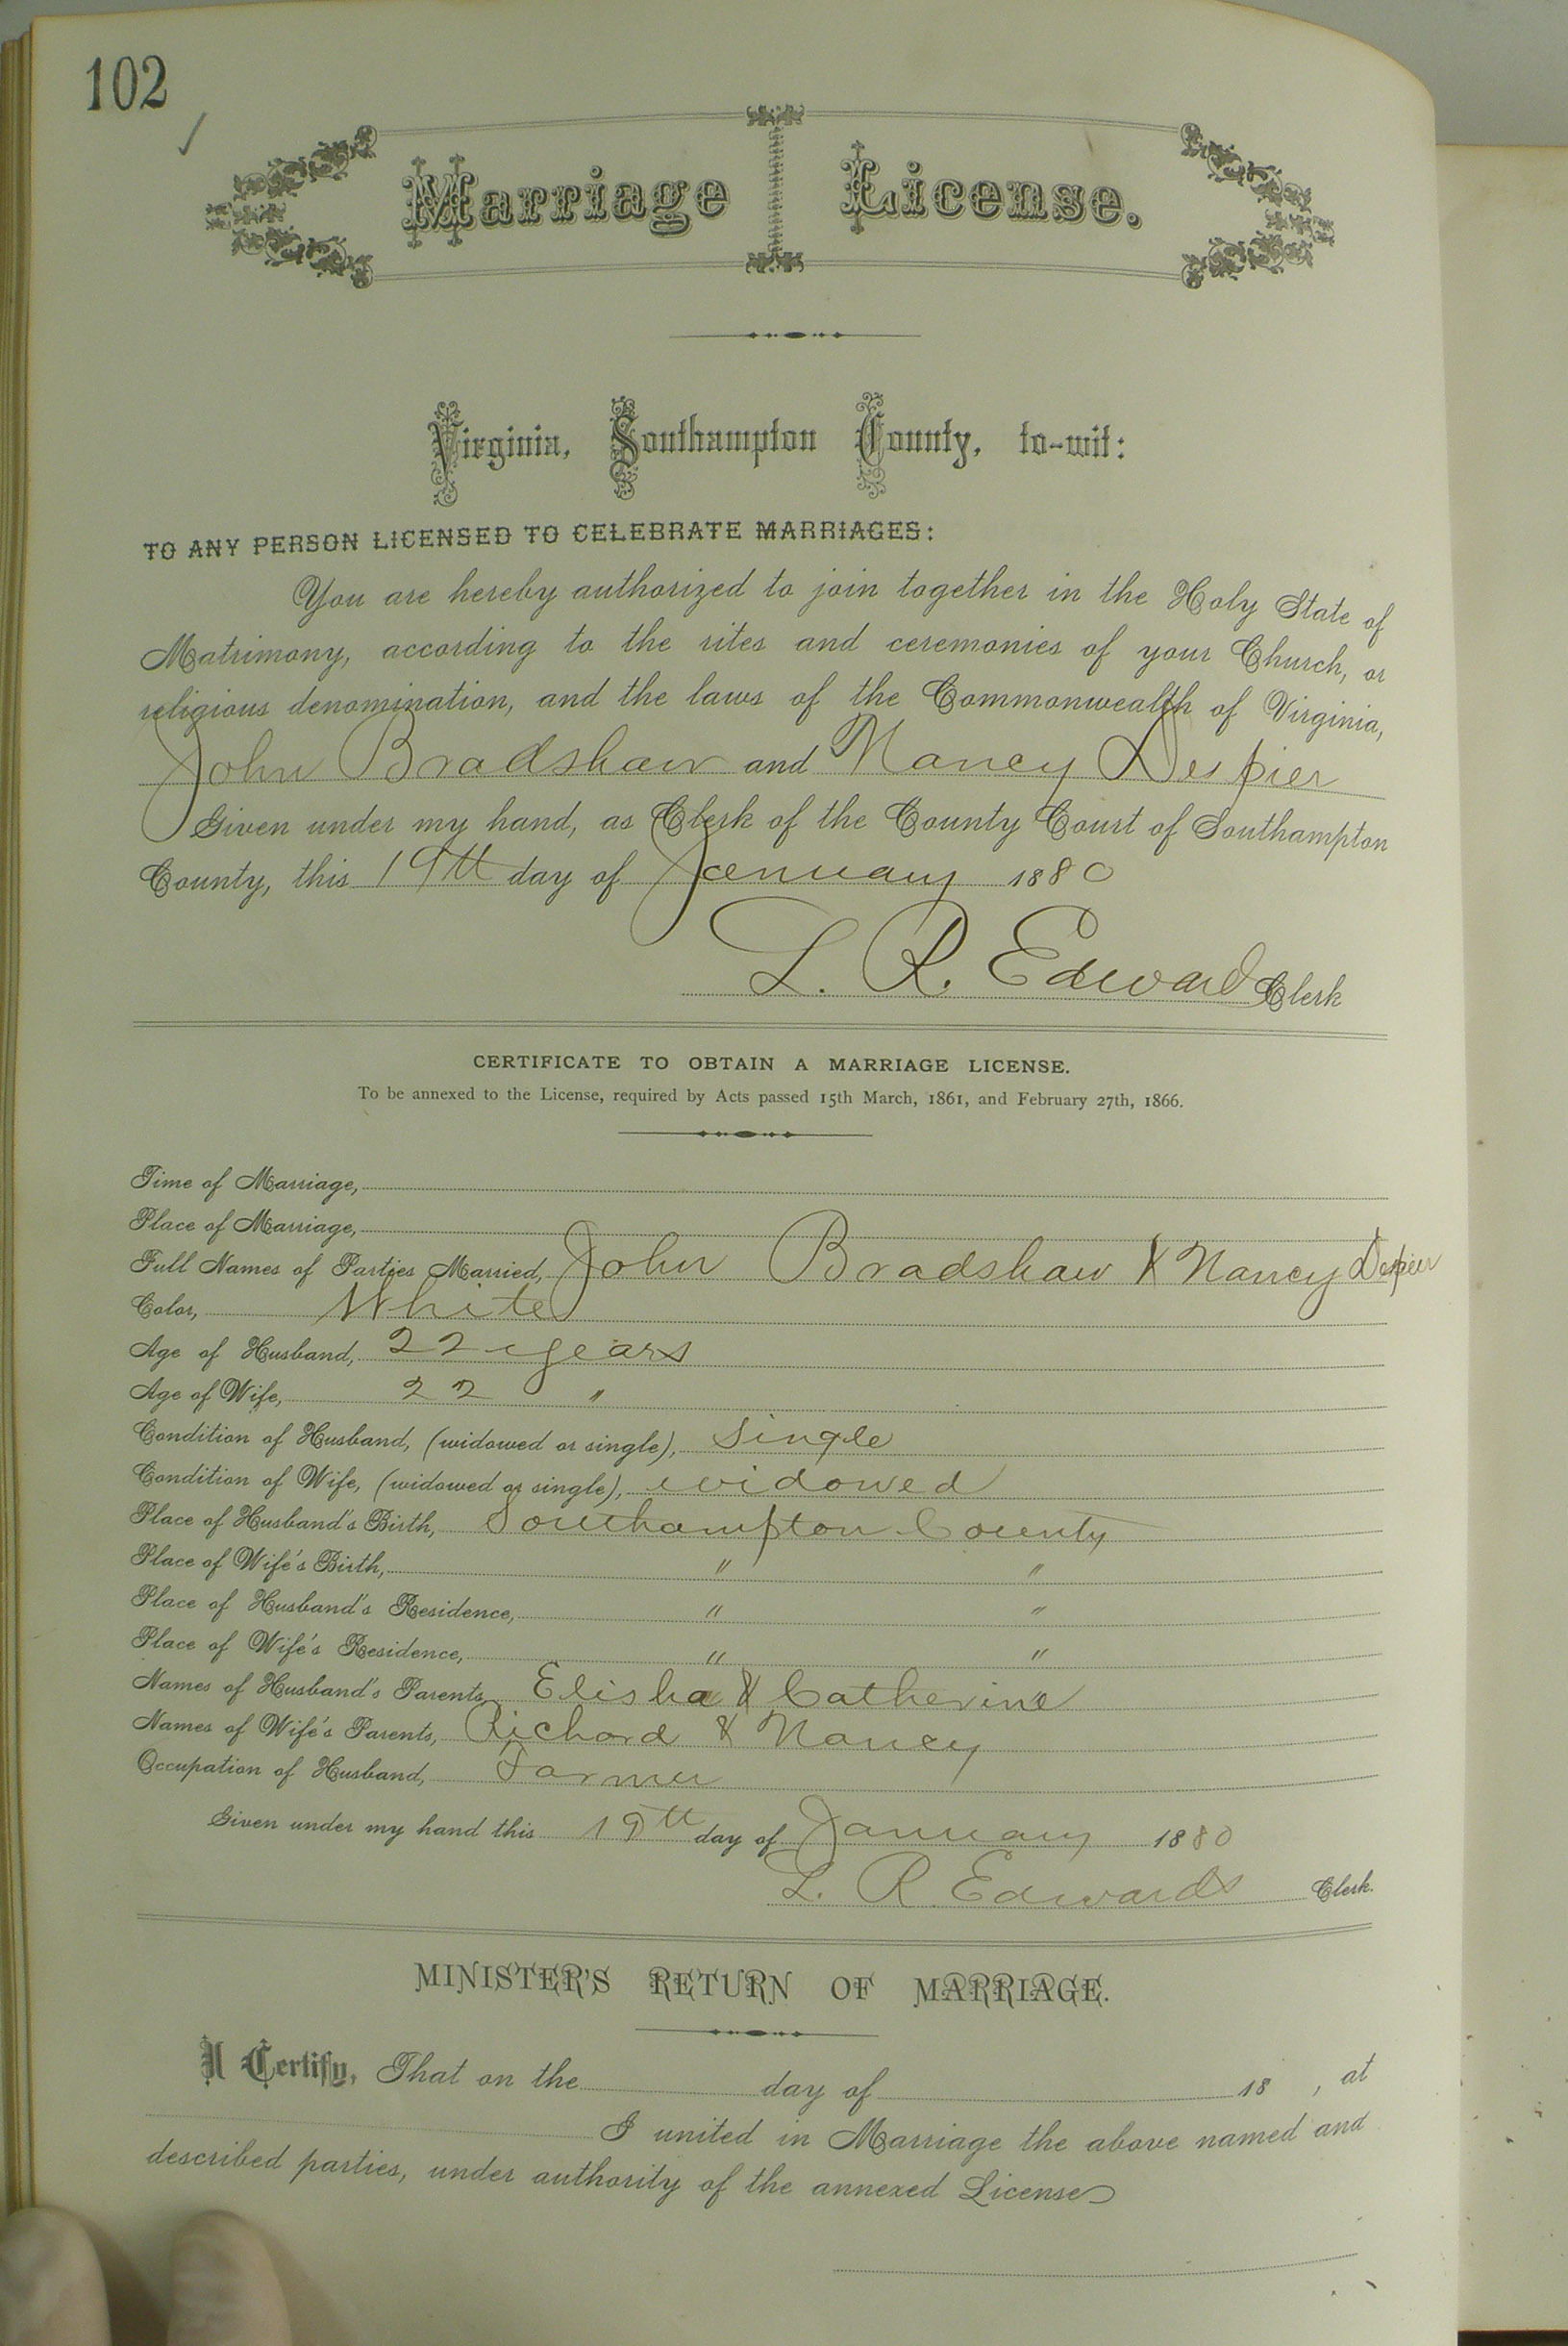 102
Marriage License.
Virginia, Southampton County, to-wit:
TO ANY PERSON LICENSED TO CELEBRATE MARRIAGES:
You are hereby authorized to join together in the Holy State of
Matrimony, according to the rites and ceremonies of your Church, or
religious denomination, and the laws of the Commonwealth of Virginia,
John Bradshaw and Nancy Despier
Given under my hand, as Clerk of the County Court of Southampton
County, this 19th day of January 1880
L. R. Edwards Clerk
CERTIFICATE TO OBTAIN A MARRIAGE LICENSE.
To be annexed to the License, required by Acts passed 15th March, 1861, and February 27th, 1866.
Time of Marriage,
Place of Marriage,
Full Names of Parties Married, John Bradshaw & Nancy Despier
Color, White
Age of Husband, 22 years
Age of Wife, 22 "
Condition of Husband, (widowed or single), Single
Condition of Wife, (widowed or single), widowed
Place of Husband's Birth, Southampton County
Place of Wife's Birth, " "
Place of Husband's Residence, " "
Place of Wife's Residence, " "
Names of Husband's Parents, Elisha & Catherine
Names of Wife's Parents, Richard & Nancy
Occupation of Husband, Farmer
Given under my hand this 19th day of January 1880
L. R. Edwards Clerk.
MINISTER'S RETURN OF MARRIAGE.
I Certify, That on the day of 18 , at
I united in Marriage the above named and
described parties, under authority of the annexed License